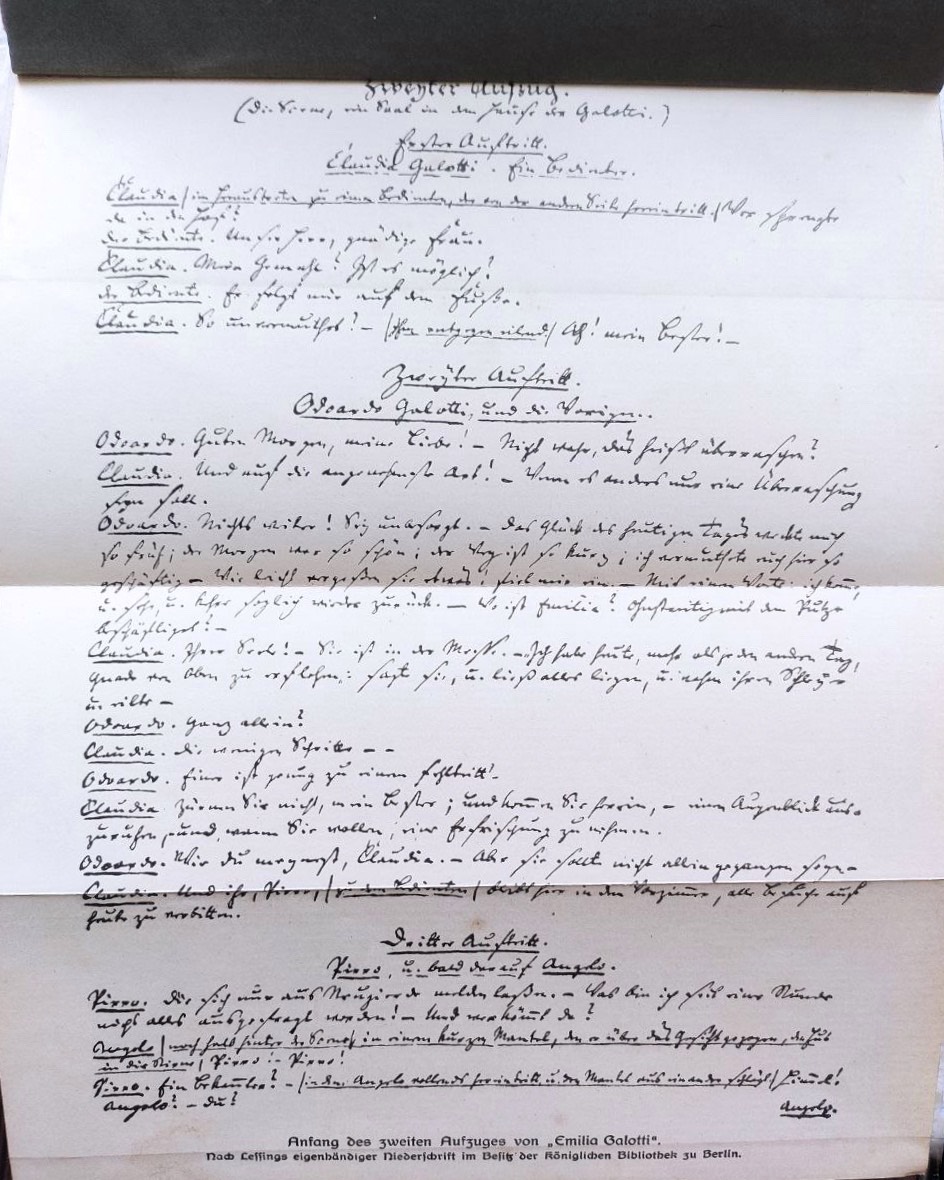 Zweyter Aufzug.
(Die Scene, ein Saal in dem Hause der Galotti.)
Erster Auftritt.
Claudia Galotti. Ein Bedienter.
Claudia (im Heraustreten zu einem Bedienten, der von der andern Seite hereintritt.) Wer sprengte
da in den Hof?
der Bediente. Unser Herr, gnädige Frau.
Claudia. Mein Gemahl? Ist es möglich?
der Bediente. Er folgt mir auf dem Fuße.
Claudia. So unvermuthet? — (ihm entgegen eilend) Ah! mein Bester! —
Zweyter Auftritt.
Odoardo Galotti, und die Vorigen.
Odoardo. Guten Morgen, meine Liebe! — Nicht wahr, das heißt überraschen?
Claudia. Und auf die angenehmste Art! — Wenn es anders nur eine Überraschung
seyn soll.
Odoardo. Nichts weiter! Sey unbesorgt. — Das Glück des heutigen Tages weckte mich
so früh; der Morgen war so schön; der Weg ist so kurz; ich vermuthete euch hier so
geschäftig — Wie leicht vergeßen sie etwas: fiel mir ein. — Mit einem Worte: ich komme,
u. sehe, u. kehre sogleich wieder zurück. — Wo ist Emilia? Ohnstreitig mit dem Putze
beschäftiget? —
Claudia. Ihrer Seele! — Sie ist in der Messe. — Ich habe heute, mehr als jeden andern Tag,
Gnade von Oben zu erflehen: sagte sie, u. ließ alles liegen, u. nahm ihren Schleyer
u. eilte —
Odoardo. Ganz allein?
Claudia. die wenigen Schritte — —
Odoardo. Einer ist genug zu einem Fehltritt! —
Claudia. Zürnen Sie nicht, mein Bester; und kommen Sie herein, — einen Augenblick aus-
zuruhen, und, wann Sie wollen, eine Erfrischung zu nehmen.
Odoardo. Wie du meynest, Claudia. — Aber sie sollte nicht allein gegangen seyn —
Claudia. Und ihr, Pirro, (zu dem Bedienten) bleibt hier in dem Vorzimmer, alle Besuche auf
heute zu verbitten.
Dritter Auftritt.
Pirro, u. bald darauf Angelo.
Pirro. Die sich nur aus Neugierde melden laßen. — Was bin ich seit einer Stunde
nicht alles ausgefragt worden! — Und wer kömmt da?
Angelo (noch halb hinter der Scene, in einem kurzen Mantel, den er über das Gesicht gezogen, den Hut
in die Stirne) Pirro! — Pirro!
Pirro. Ein Bekannter? — (indem Angelo vollends hereintritt, u. den Mantel auseinander schlägt) Himmel!
Angelo? — Du?
Angelo.
Anfang des zweiten Aufzuges von „Emilia Galotti“.
Nach Lessings eigenhändiger Niederschrift im Besitz der Königlichen Bibliothek zu Berlin.